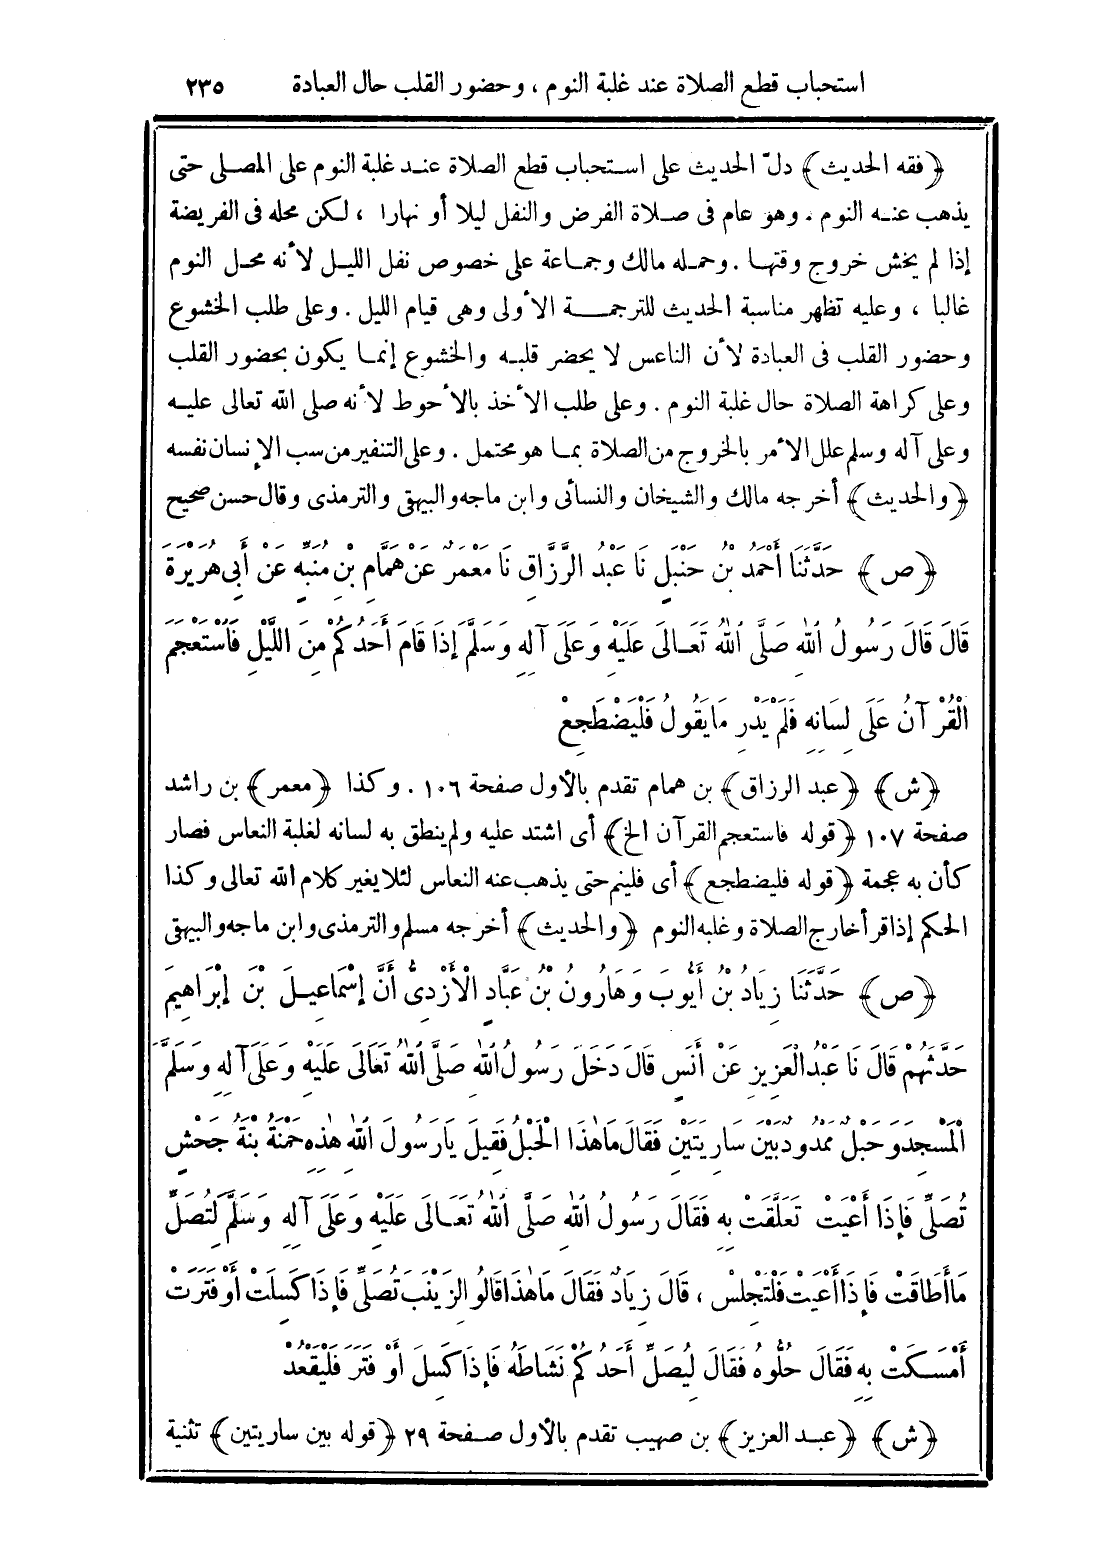 استحباب قطع الصلاة عند غلبة النوم ، وحضور القلب حال العبادة ٢٣٥
﴿فقه الحديث﴾ دلّ الحديث على استحباب قطع الصلاة عند غلبة النوم على المصلى حتى
يذهب عنه النوم . وهو عام فى صلاة الفرض والنفل ليلا أو نهارا ، لكن محله فى الفريضة
إذا لم يخش خروج وقتها . وحمله مالك وجماعة على خصوص نفل الليل لأنه محل النوم
غالبا ، وعليه تظهر مناسبة الحديث للترجمة الأولى وهى قيام الليل . وعلى طلب الخشوع
وحضور القلب فى العبادة لأن الناعس لا يحضر قلبه والخشوع إنما يكون بحضور القلب
وعلى كراهة الصلاة حال غلبة النوم . وعلى طلب الأخذ بالأحوط لأنه صلى الله تعالى عليه
وعلى آله وسلم علل الأمر بالخروج من الصلاة بما هو محتمل . وعلى التنفير من سب الإنسان نفسه
﴿والحديث﴾ أخرجه مالك والشيخان والنسائى وابن ماجه والبيهقى والترمذى وقال حسن صحيح
﴿ص﴾ حَدَّثَنَا أَحْمَدُ بْنُ حَنْبَلٍ نَا عَبْدُ الرَّزَّاقِ نَا مَعْمَرٌ عَنْ هَمَّامِ بْنِ مُنَبِّهٍ عَنْ أَبِى هُرَيْرَةَ
قَالَ قَالَ رَسُولُ اللهِ صَلَّى اللهُ تَعَالَى عَلَيْهِ وَعَلَى آلِهِ وَسَلَّمَ إِذَا قَامَ أَحَدُكُمْ مِنَ اللَّيْلِ فَاسْتَعْجَمَ
الْقُرْآنُ عَلَى لِسَانِهِ فَلَمْ يَدْرِ مَا يَقُولُ فَلْيَضْطَجِعْ
﴿ش﴾ ﴿عبد الرزاق﴾ بن همام تقدم بالأول صفحة ١٠٦ . وكذا ﴿معمر﴾ بن راشد
صفحة ١٠٧ ﴿قوله فاستعجم القرآن الخ﴾ أى اشتد عليه ولم ينطق به لسانه لغلبة النعاس فصار
كأن به عجمة ﴿قوله فليضطجع﴾ أى فلينم حتى يذهب عنه النعاس لئلا يغير كلام الله تعالى وكذا
الحكم إذا قرأ خارج الصلاة وغلبه النوم ﴿والحديث﴾ أخرجه مسلم والترمذى وابن ماجه والبيهقى
﴿ص﴾ حَدَّثَنَا زِيَادُ بْنُ أَيُّوبَ وَهَارُونُ بْنُ عَبَّادٍ الْأَزْدِىُّ أَنَّ إِسْمَاعِيلَ بْنَ إِبْرَاهِيمَ
حَدَّثَهُمْ قَالَ نَا عَبْدُ الْعَزِيزِ عَنْ أَنَسٍ قَالَ دَخَلَ رَسُولُ اللهِ صَلَّى اللهُ تَعَالَى عَلَيْهِ وَعَلَى آلِهِ وَسَلَّمَ
الْمَسْجِدَ وَحَبْلٌ مَمْدُودٌ بَيْنَ سَارِيَتَيْنِ فَقَالَ مَا هٰذَا الْحَبْلُ فَقِيلَ يَا رَسُولَ اللهِ هٰذِهِ حَمْنَةُ بِنْةُ جَحْشٍ
تُصَلِّى فَإِذَا أَعْيَتْ تَعَلَّقَتْ بِهِ فَقَالَ رَسُولُ اللهِ صَلَّى اللهُ تَعَالَى عَلَيْهِ وَعَلَى آلِهِ وَسَلَّمَ لِتُصَلِّ
مَا أَطَاقَتْ فَإِذَا أَعْيَتْ فَلْتَجْلِسْ ، قَالَ زِيَادٌ فَقَالَ مَا هٰذَا قَالُوا لِزَيْنَبَ تُصَلِّى فَإِذَا كَسِلَتْ أَوْ فَتَرَتْ
أَمْسَكَتْ بِهِ فَقَالَ حُلُّوهُ فَقَالَ لِيُصَلِّ أَحَدُكُمْ نَشَاطَهُ فَإِذَا كَسِلَ أَوْ فَتَرَ فَلْيَقْعُدْ
﴿ش﴾ ﴿عبد العزيز﴾ بن صهيب تقدم بالأول صفحة ٢٩ ﴿قوله بين ساريتين﴾ تثنية